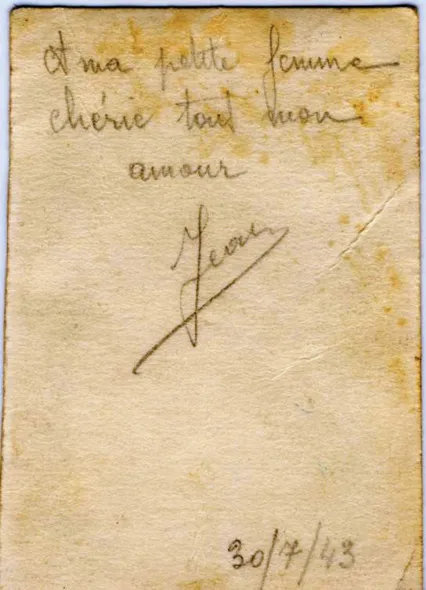 A ma petite femme
chérie tout mon
amour
Jean
30/7/43